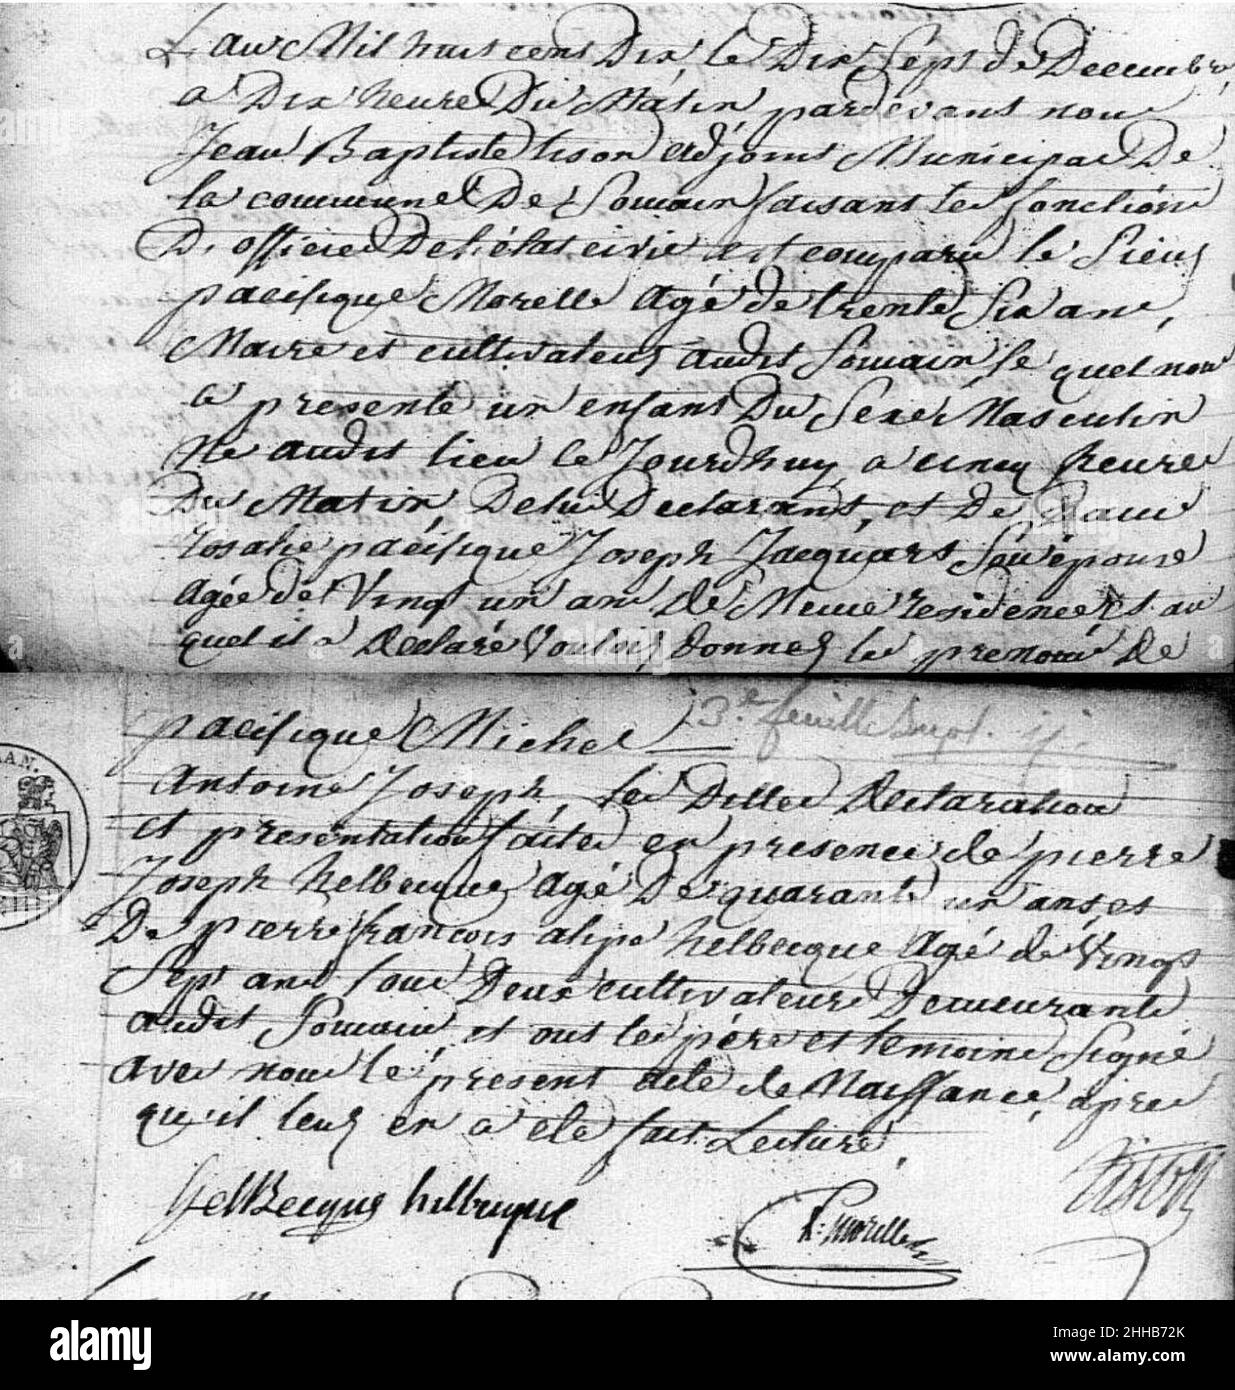 L'an Mil huit cens Dix, le Dix Sept de Decembre,
a Dix heure Du Matin, pardevant nous
Jean Baptiste tison adjoint Municipal De
la commune De Somain faisant les fonction
D'officier De l'état civil est comparu le Sieur
pacifique Morelle Agé de trente Six ans,
Maire et cultivateur audit Somain, le quel nous
a presenté un enfant Du Sexe Masculin
Né audit lieu ce Jourdhuy a cinq heure
Du Matin, De lui Declarant, et De Dame
rosalie pacifique Joseph Jacquart Son épouse
agée de Vingt un ans de Meme residence, et au
quel il a declaré Vouloir donner le prenoms de
pacifique Michel 3.e feuille Supl.
Antoine Joseph, les Dittes Declaration
et presentation faite en presence de pierre
Joseph helbecque agé De quarante un ans, et
De pierre françois alipe helbecque agé de Vingt
Sept ans tous Deux cultivateurs Demeurants
audit Somain, et ont les père et temoins Signé
avec nous le present acte de Naissance, après
qu'il leur en a été fait Lecture.
helBecque helbecque
P: morelle
tison
AN.
alamy
Image ID: 2HHB72K
www.alamy.com